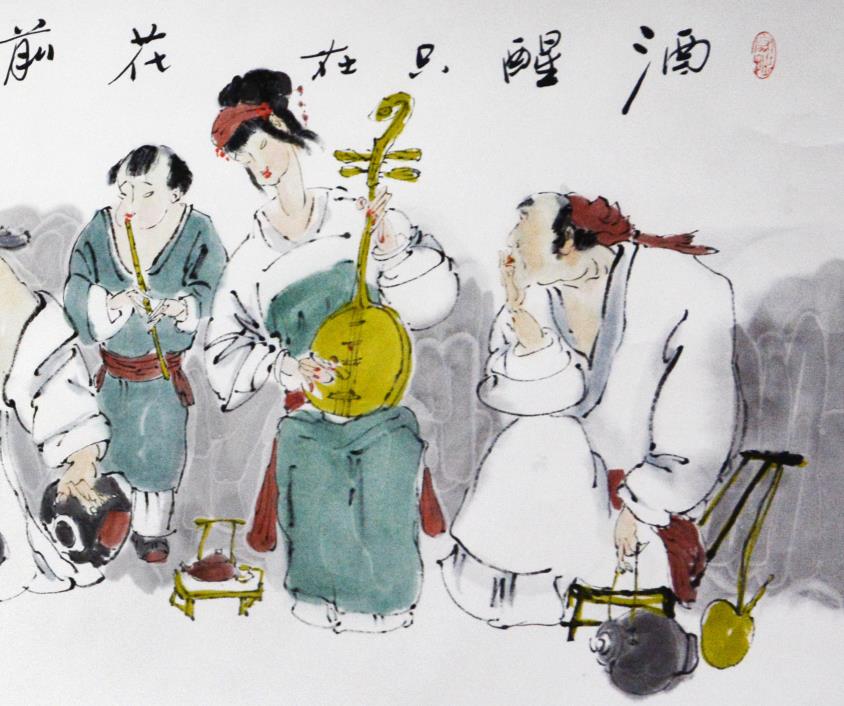 酒醒只在花前